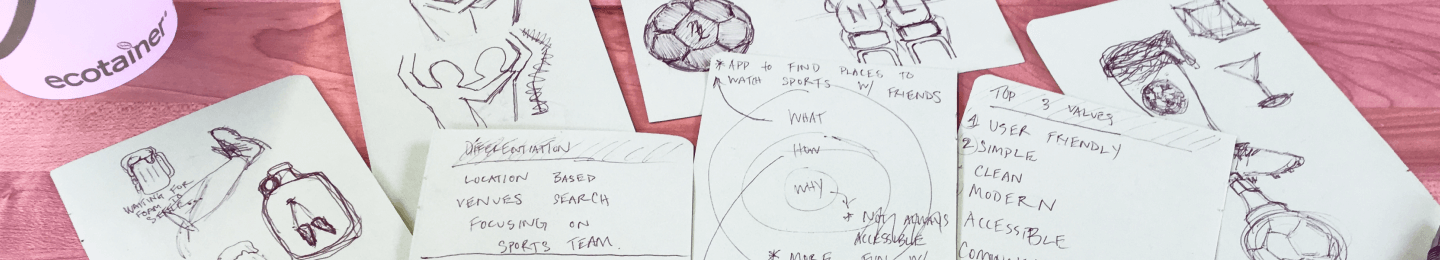 ecotainer
WAITING FOR
FOAM TO
DIFFERENTIATION
LOCATION BASED
VENUES SEARCH
FOCUSING ON
SPORTS TEAM.
* APP TO FIND PLACES TO
WATCH SPORTS W/ FRIENDS
WHAT
HOW
WHY
* NOT ALWAYS
ACCESSIBLE
* MORE FUN W/
TOP 3 VALUES
1 USER FRIENDLY
2) SIMPLE
CLEAN
MODERN
ACCESSIBLE